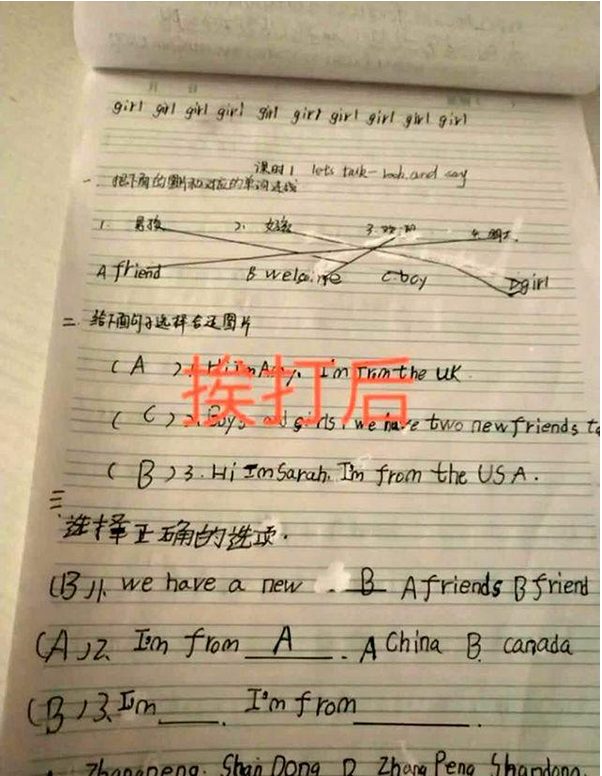 girl girl girl girl girl girl girl girl girl girl
课时1 let's talk-look and say
一. 把下面的图片和对应的单词连线
1. 男孩 2. 女孩 3. 欢迎 4. 朋友.
A friend B welcome C boy D girl
二. 给下面句子选择合适图片
(A) 1. Hi I'm Amy. I'm from the UK.
挨打后
(C) 2. Boys and girls, we have two new friends
(B) 3. Hi I'm Sarah. I'm from the USA.
三
选择正确的选项.
(B) 1. we have a new B A friends B friend
(A) 2. I'm from A. A China B. canada
(B) 3. I'm ____. I'm from ________.
Zhangpeng. Shan Dong ZhangPeng Shandong.